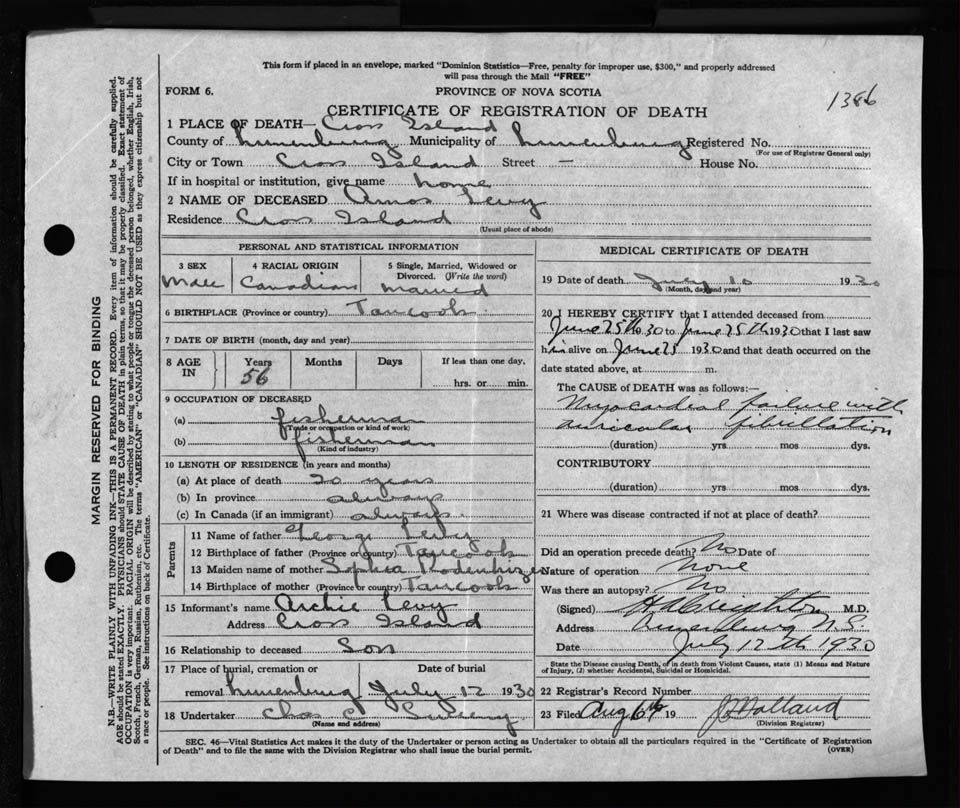 This form if placed in an envelope, marked "Dominion Statistics—Free, penalty for improper use, $300," and properly addressed
will pass through the Mail "FREE"
FORM 6.
PROVINCE OF NOVA SCOTIA
1386
CERTIFICATE OF REGISTRATION OF DEATH
1 PLACE OF DEATH— Cross Island
County of Lunenburg Municipality of Lunenburg Registered No.
(For use of Registrar General only)
City or Town Cross Island Street — House No.
If in hospital or institution, give name home
2 NAME OF DECEASED Amos Levy
Residence Cross Island
(Usual place of abode)
PERSONAL AND STATISTICAL INFORMATION
3 SEX
Male
4 RACIAL ORIGIN
Canadian
5 Single, Married, Widowed or
Divorced. (Write the word)
Married
6 BIRTHPLACE (Province or country) Tancook
7 DATE OF BIRTH (month, day and year)
8 AGE IN
Years
56
Months
Days
If less than one day,
hrs. or min.
9 OCCUPATION OF DECEASED
(a) fisherman
(Trade or occupation or kind of work)
(b) fisherman
(Kind of industry)
10 LENGTH OF RESIDENCE (in years and months)
(a) At place of death 20 years
(b) In province always
(c) In Canada (if an immigrant) always
Parents
11 Name of father George Levy
12 Birthplace of father (Province or country) Tancook
13 Maiden name of mother Sophia Rodenhizer
14 Birthplace of mother (Province or country) Tancook
15 Informant's name Archie Levy
Address Cross Island
16 Relationship to deceased Son
17 Place of burial, cremation or
Date of burial
removal Lunenburg July 12 1930
18 Undertaker Chas C
(Name and address)
MEDICAL CERTIFICATE OF DEATH
19 Date of death July 10 1930
(Month, day and year)
20 I HEREBY CERTIFY that I attended deceased from
June 25th 1930 to June 25th 1930 that I last saw
him alive on June 25 1930 and that death occurred on the
date stated above, at m.
The CAUSE OF DEATH was as follows:—
Myocardial failure with
auricular fibrillation
(duration) yrs mos dys.
CONTRIBUTORY
(duration) yrs mos dys.
21 Where was disease contracted if not at place of death?
Did an operation precede death? No Date of
Nature of operation None
Was there an autopsy? No
(Signed) H A Creighton M.D.
Address Lunenburg N.S.
Date July 12th 1930
State the Disease causing Death, or in death from Violent Causes, state (1) Means and Nature
of Injury, (2) whether Accidental, Suicidal or Homicidal.
22 Registrar's Record Number
23 Filed Aug 6th 19 Holland
(Division Registrar)
SEC. 46—Vital Statistics Act makes it the duty of the Undertaker or person acting as Undertaker to obtain all the particulars required in the "Certificate of Registration
of Death" and to file the same with the Division Registrar who shall issue the burial permit.
(OVER)
MARGIN RESERVED FOR BINDING
N.B.—WRITE PLAINLY WITH UNFADING INK—THIS IS A PERMANENT RECORD. Every item of information should be carefully supplied.
AGE should be stated EXACTLY. PHYSICIANS should STATE CAUSE OF DEATH in plain terms, so that it may be properly classified. Exact statement of
OCCUPATION is very important. RACIAL ORIGIN will be described by stating to what people or tongue the deceased person belonged, whether English, Irish,
Scotch, French, German, Russian, Ruthenian, etc. The terms "AMERICAN" or "CANADIAN" SHOULD NOT BE USED as they express citizenship but not
a race or people. See instructions on back of Certificate.